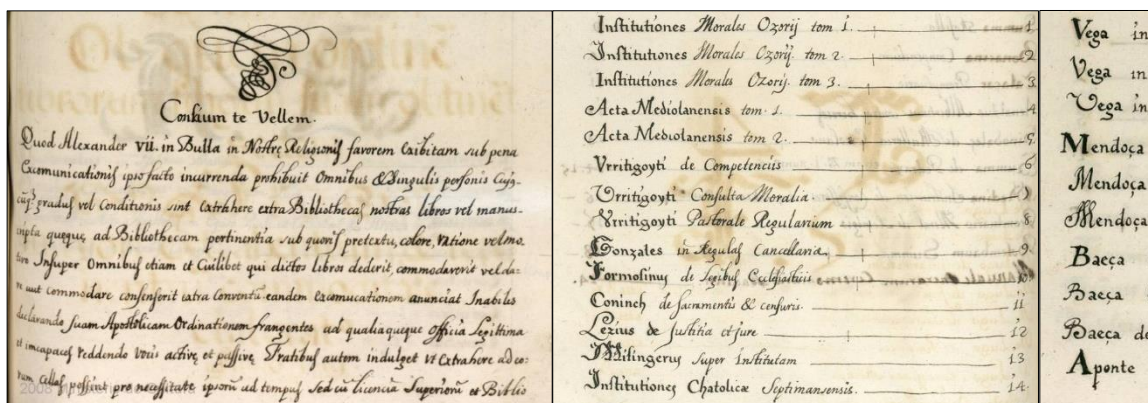 Consium te Vellem.
Quod Alexander VII. in Bulla in Nostrę Religionis favorem Exibitam sub pena
Excomunicationis ipso facto incurrenda prohibuit Omnibus & Singulis personis Cuj9-
cuqȝ gradus vel Conditionis sint extrahere extra Bibliothecas nostras libros vel manus-
cripta queque ad Bibliothecam pertinentia sub quovis pretextu, colore, ratione vel mo-
tivo Insuper Omnibus etiam et Cuilibet qui dictos libros dederit, commodaverit vel da-
re aut commodare consenserit extra Conventũ eandem excomucationem anunciat Inabiles
declarando suam Apostolicam Ordinationem frangentes ad qualiaqueque officia Legittima
et imcapaces reddendo vocis activę et passivę Fratibus autem indulget ut extrahere ad eo-
rum Cellas possint pro necessitate ipsorũ ad tempus sed cũ licencia Superiorũ et Biblio
Institutiones Morales Ozorij tom 1. 1
Institutiones Morales Ozorij. tom 2. 2
Institutiones Morales Ozorij. tom 3. 3
Acta Mediolanensis tom. 1. 4
Acta Mediolanensis tom 2. 5
Vrritigoyti de Competenciis 6
Vrritigoyti Consulta Moralia 7
Vrritigoyti Pastorale Regularium 8
Gonzales in Regulas Cancellaria 9
Formosinus de Legibus Ecclesiasticis 10
Coninch de sacramentis & censuris. 11
Lezius de Justitia et jure 12
Milingerus super institutam 13
Institutiones Chatolicæ Septimansensis. 14.
Vega in
Vega in
Vega in
Mendoça
Mendoça
Mendoça
Baeça
Baeça
Baeça de
Aponte